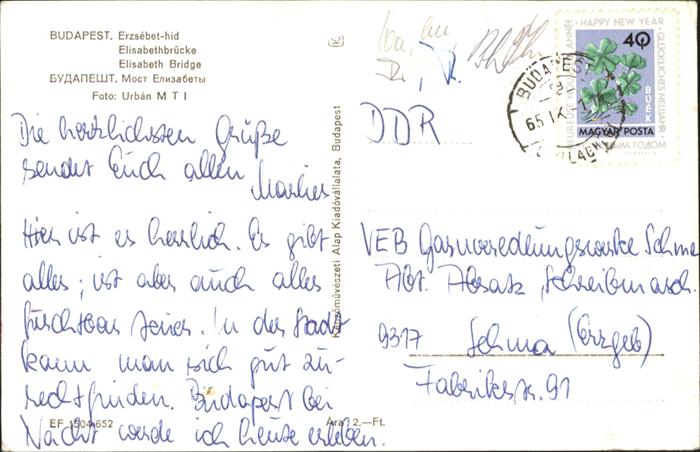 BUDAPEST. Erzsébet-hid
Elisabethbrücke
Elisabeth Bridge
БУДАПЕШТ. Мост Елизабеты
Foto: Urbán M T I
Die herzlichsten Grüße
sendet Euch allen
Marlies
Hier ist es herrlich. Es gibt
alles; ist aber auch alles
furchtbar teuer. In der Stadt
kann man sich gut zu-
rechtfinden. Budapest bei
Nacht werde ich heute erleben.
EF 1504/652
Ára: 2.—Ft.
Képzőművészeti Alap Kiadóvállalata, Budapest
DDR
VEB Garnveredlungswerke Sehma
Abt. Absatz, Schreibmasch.
9317 Sehma (Erzgeb)
Fabrikstr. 91
HAPPY NEW YEAR
GLÜCKLICHES NEUJAHR
40
BUÉK
MAGYAR POSTA
BUDAPEST
65 IX